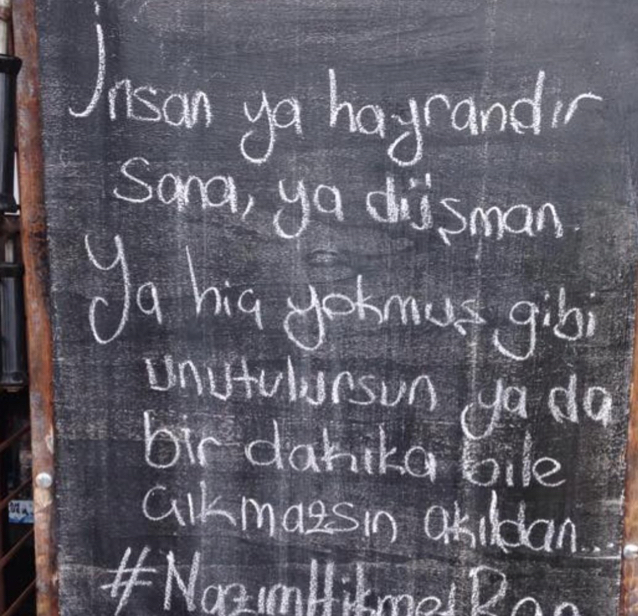 İnsan ya hayrandır
sana, ya düşman.
Ya hiç yokmuş gibi
unutulursun ya da
bir dakika bile
çıkmazsın akıldan...
#NazımHikmetRan